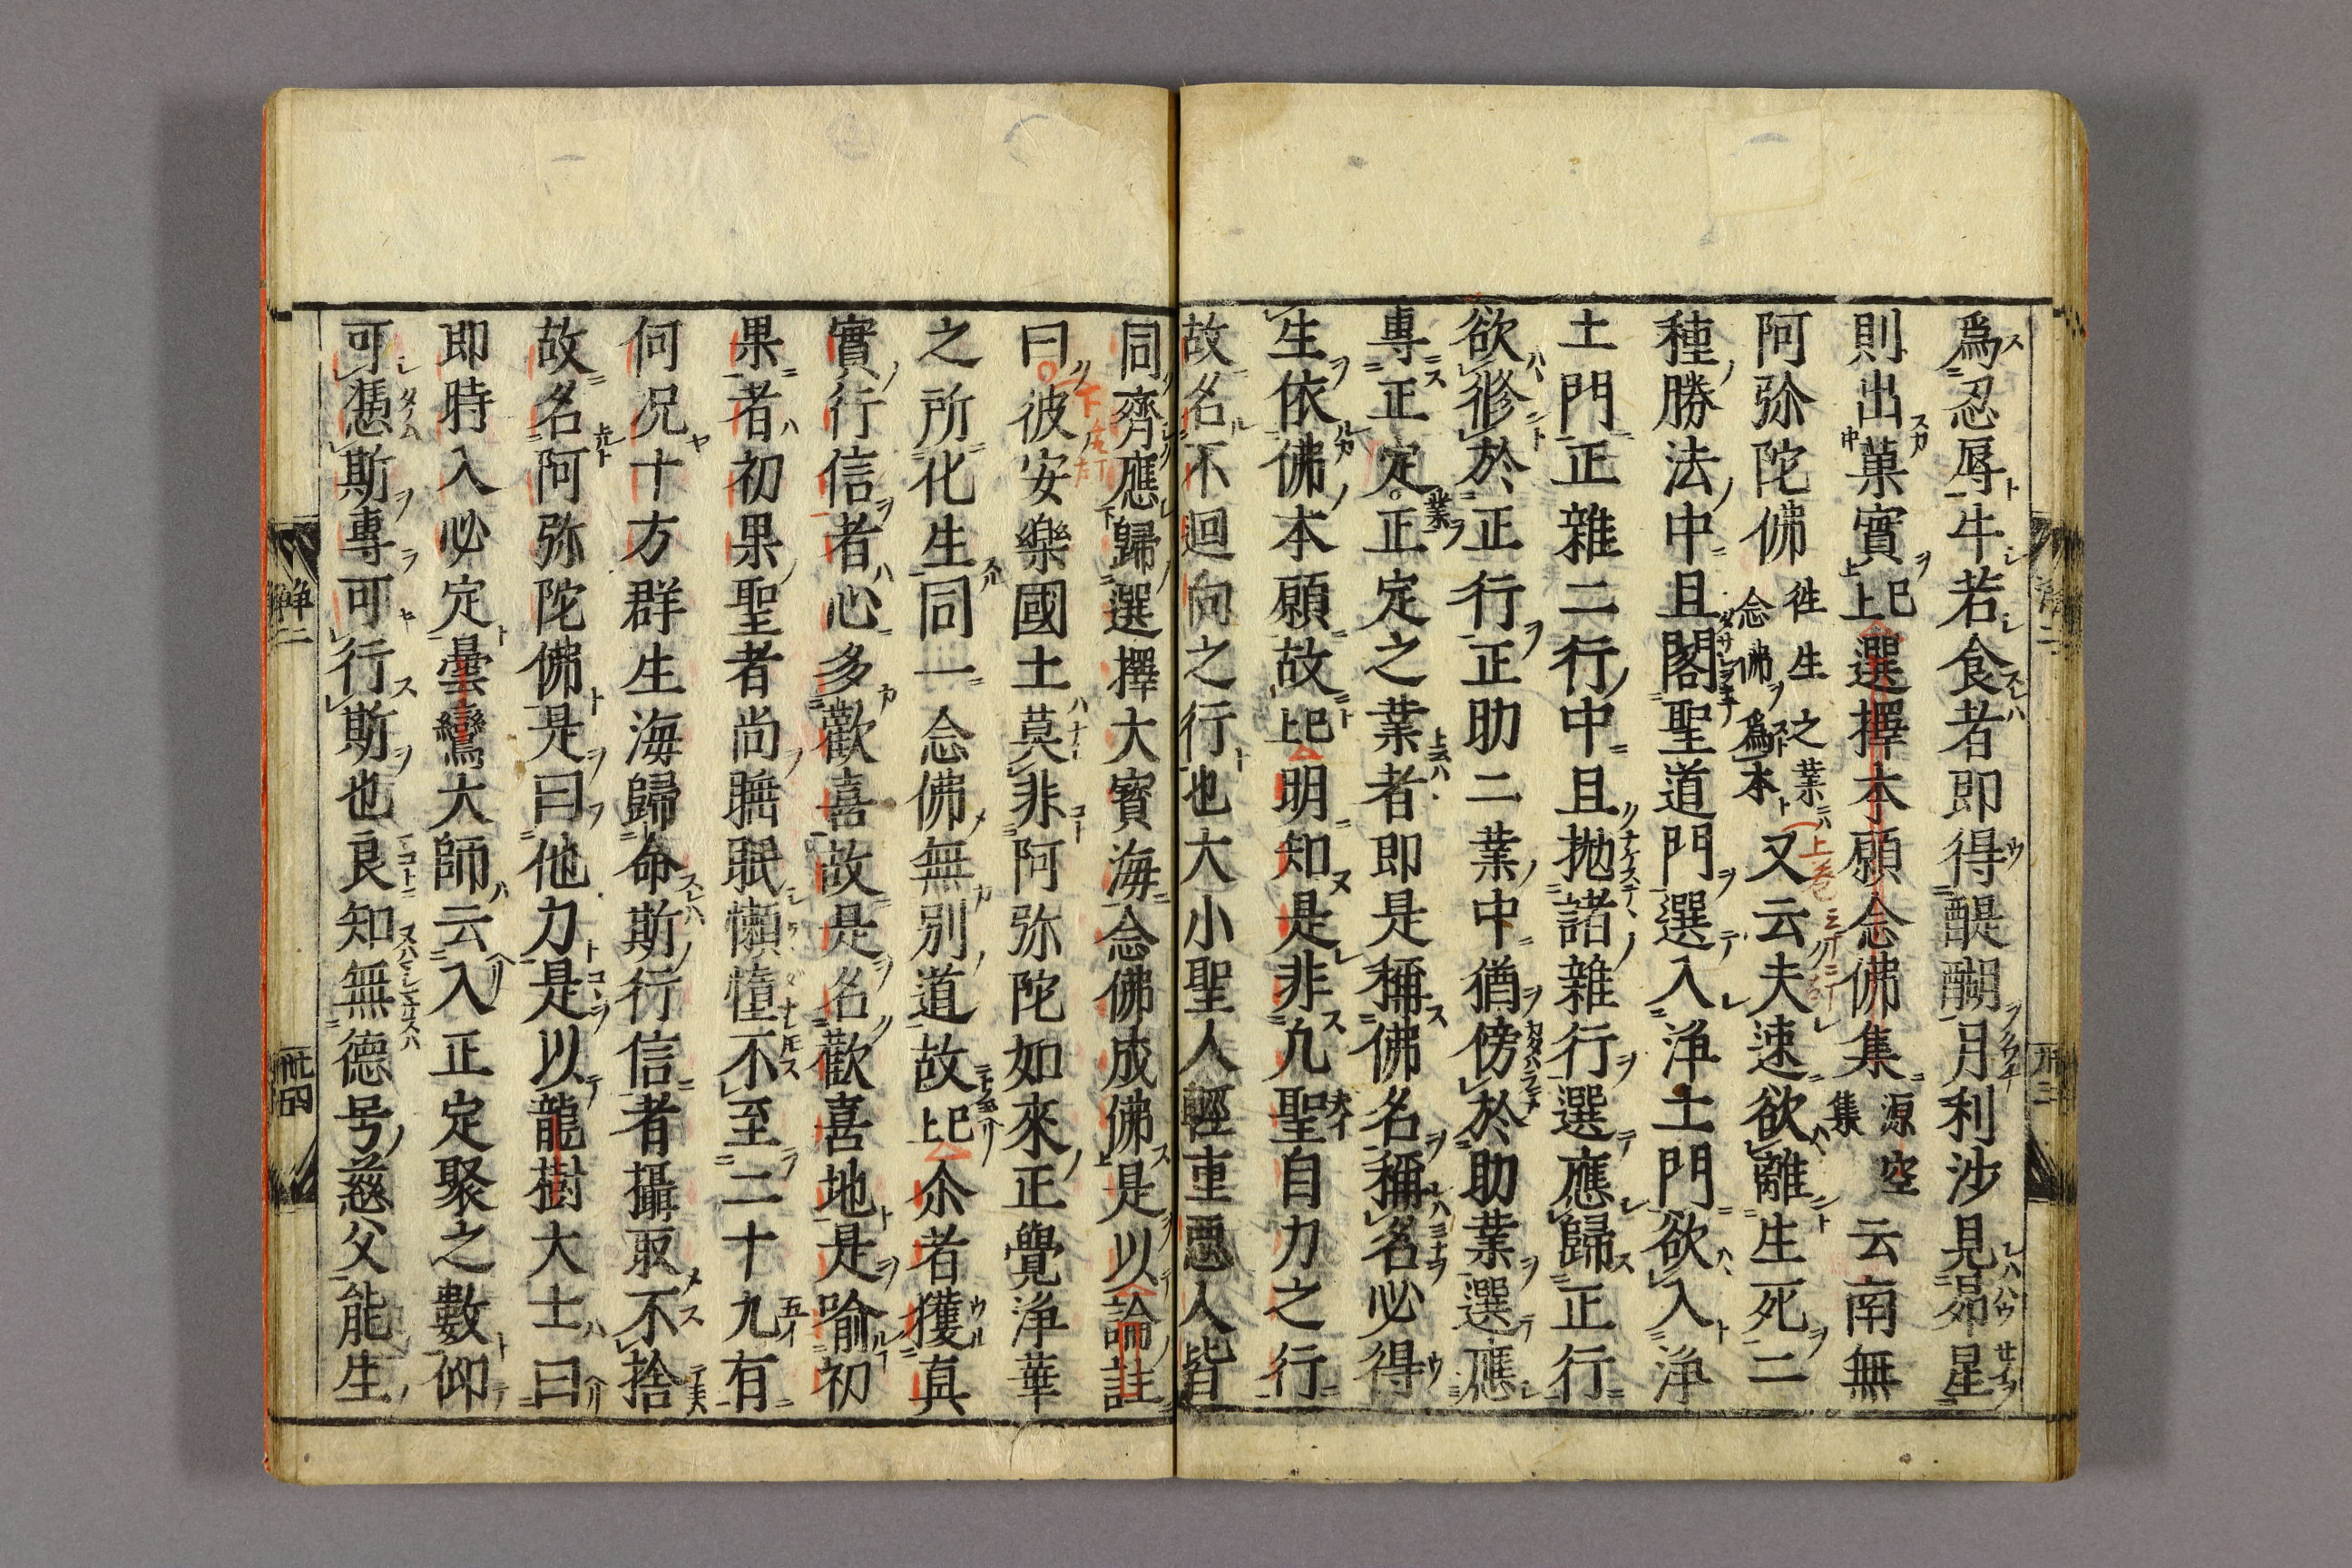 爲忍辱牛若食者即得醍醐月利沙見昴星
則出菓實已上選擇本願念佛集源空集云南無
阿弥陀佛往生之業念佛爲本又云夫速欲離生死二
種勝法中且閣聖道門選入浄土門欲入浄
土門正雜二行中且抛諸雜行選應歸正行
欲修於正行正助二業中猶傍於助業選應
專正定正定之業者即是稱佛名稱名必得
生依佛本願故已上明知是非凡聖自力之行
故名不迴向之行也大小聖人輕重悪人皆
同齊應歸選擇大寳海念佛成佛是以論註
曰彼安樂國土莫非阿弥陀如來正覺浄華
之所化生同一念佛無別道故已上尒者獲真
實行信者心多歡喜故是名歡喜地是喻初
果者初果聖者尚睡眠懶惰不至二十九有
何况十方群生海歸命斯行信者攝取不捨
故名阿弥陀佛是曰他力是以龍樹大士曰
即時入必定曇鸞大師云入正定聚之數仰
可憑斯專可行斯也良知無德号慈父能生